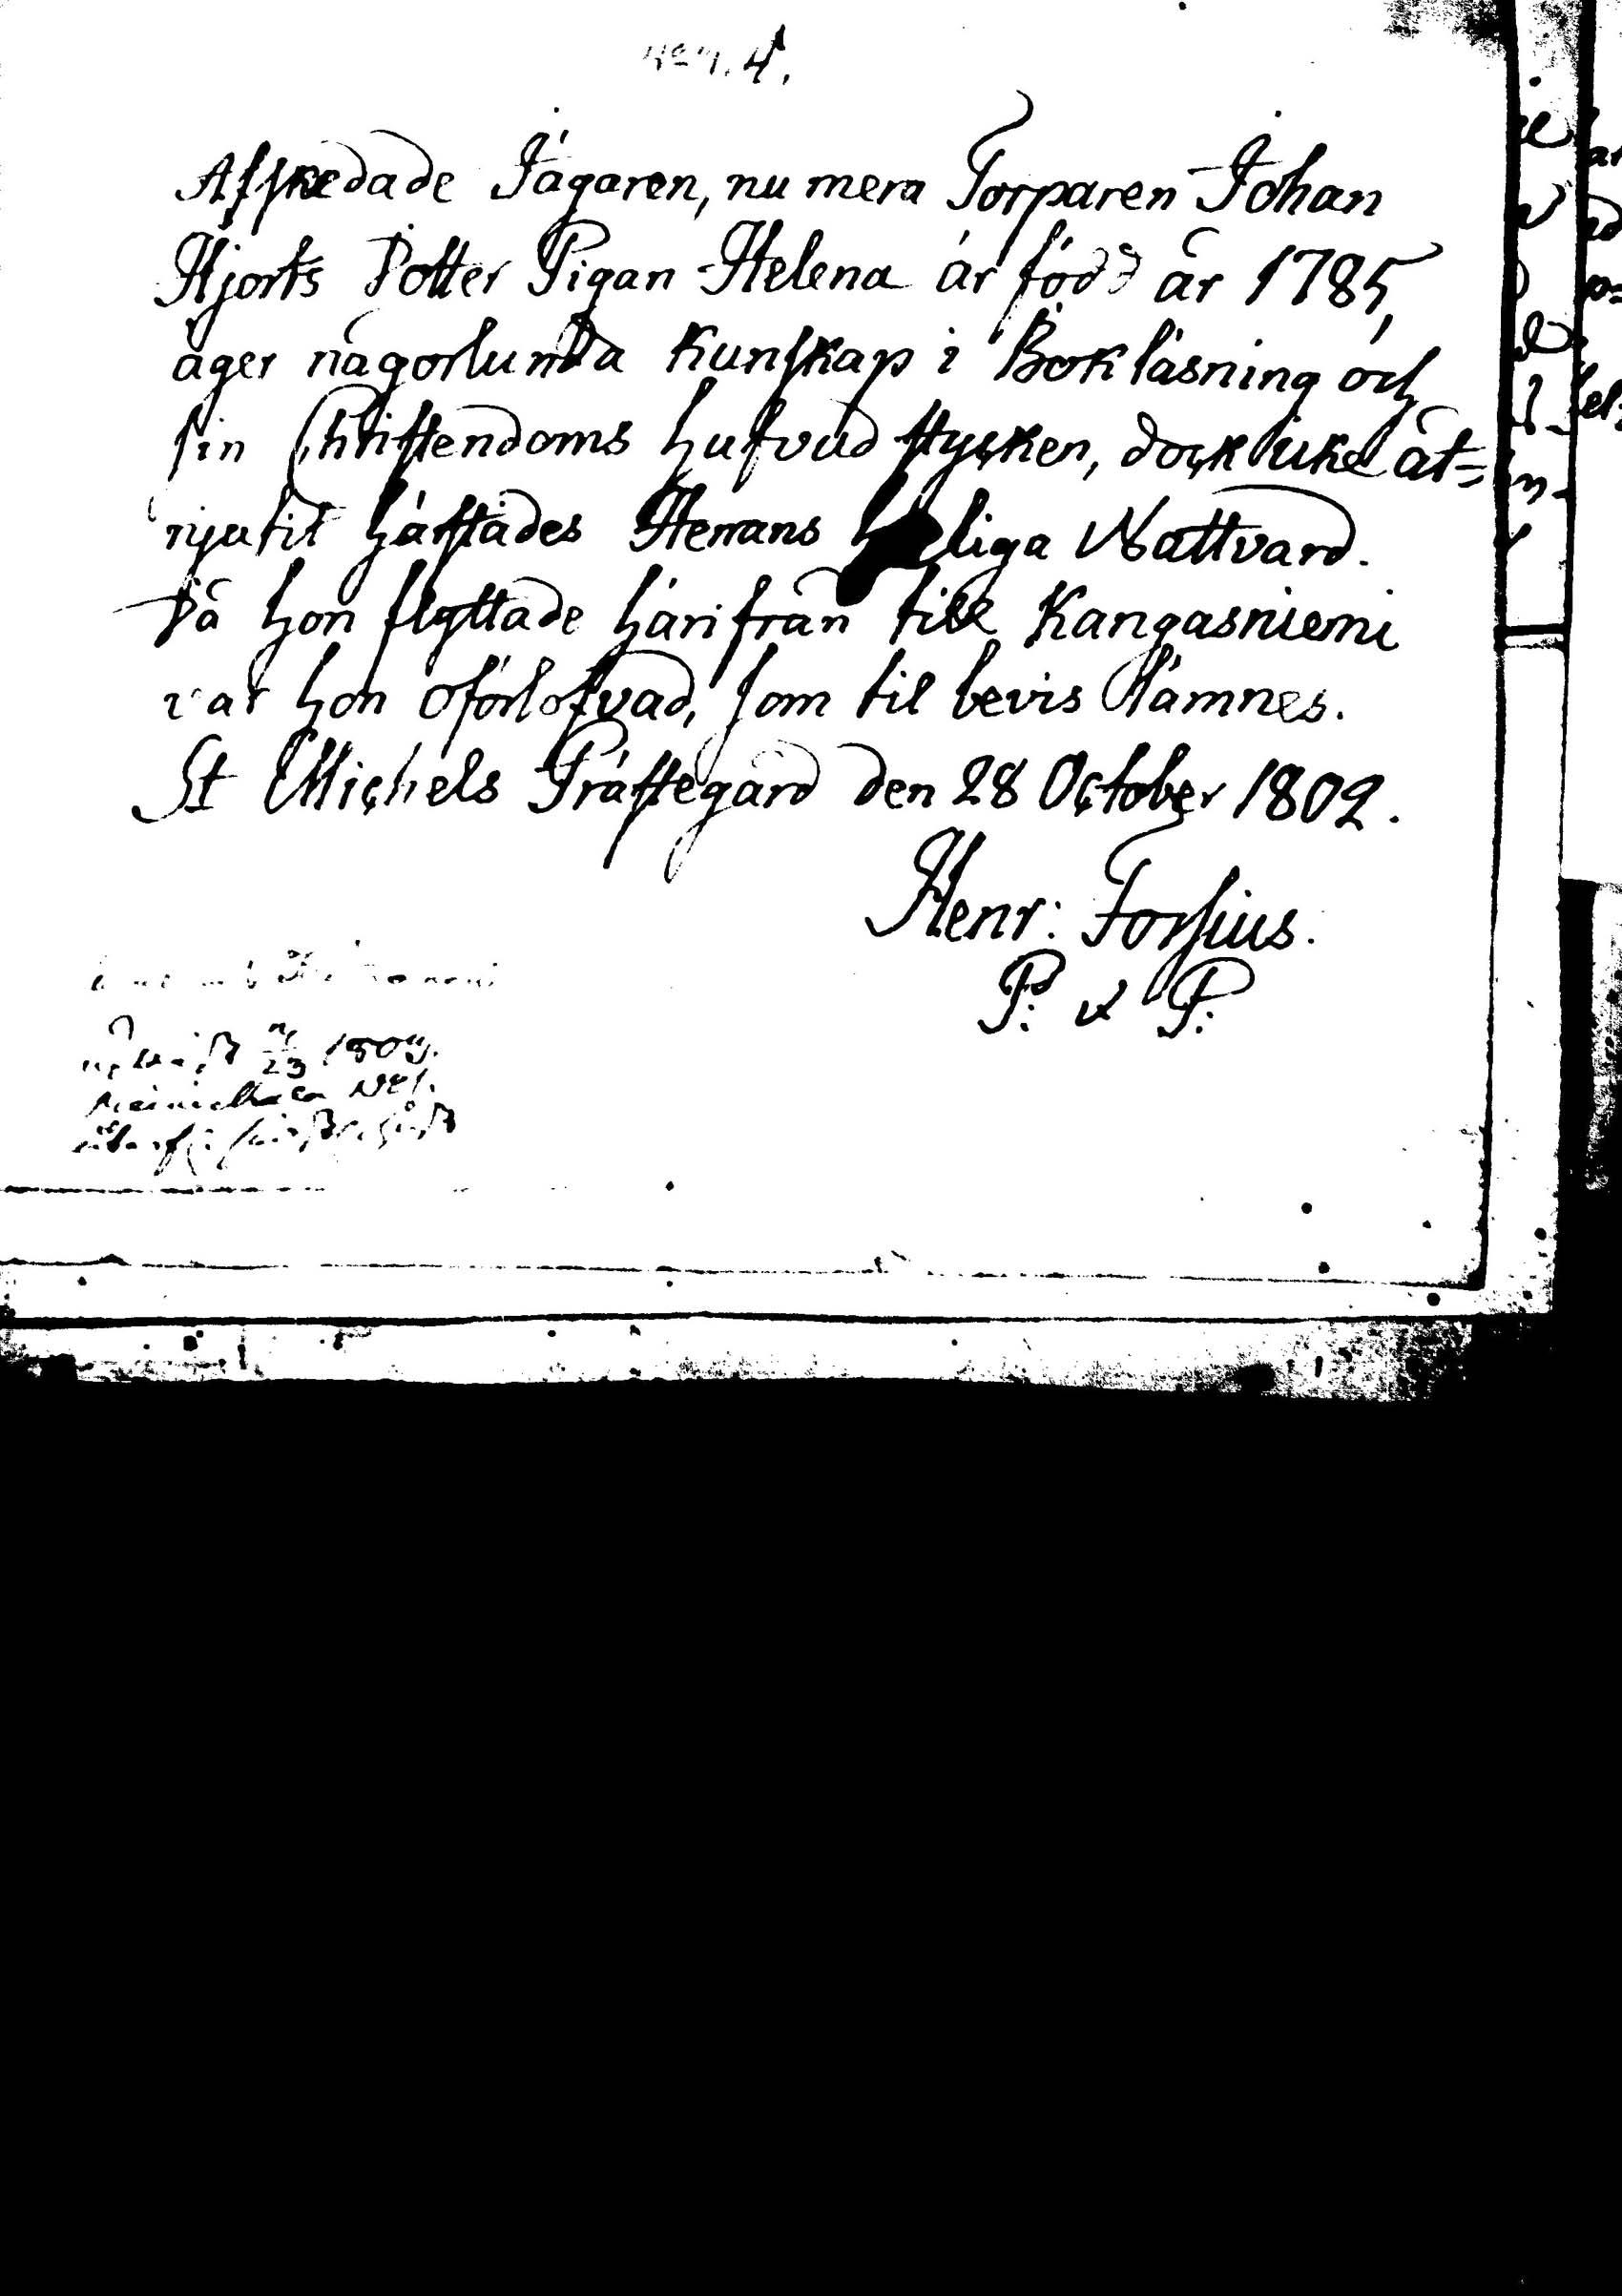 4.
Afskedade Jägaren, nu mera Torparen Johan
Hjorts Dotter Pigan Helena är född år 1785,
äger någorlunda Kunskap i Bokläsning och
sin Christendoms hufvud stycken, dock icke åt=
njutit härstädes Herrans heliga Nattvard.
Då hon flyttade härifrån till Kangasniemi
var hon oförlofvad, som til bevis lämnes.
St Michels Prästegård den 28 October 1802.
Henr: Forsius.
P: & P:
1804.